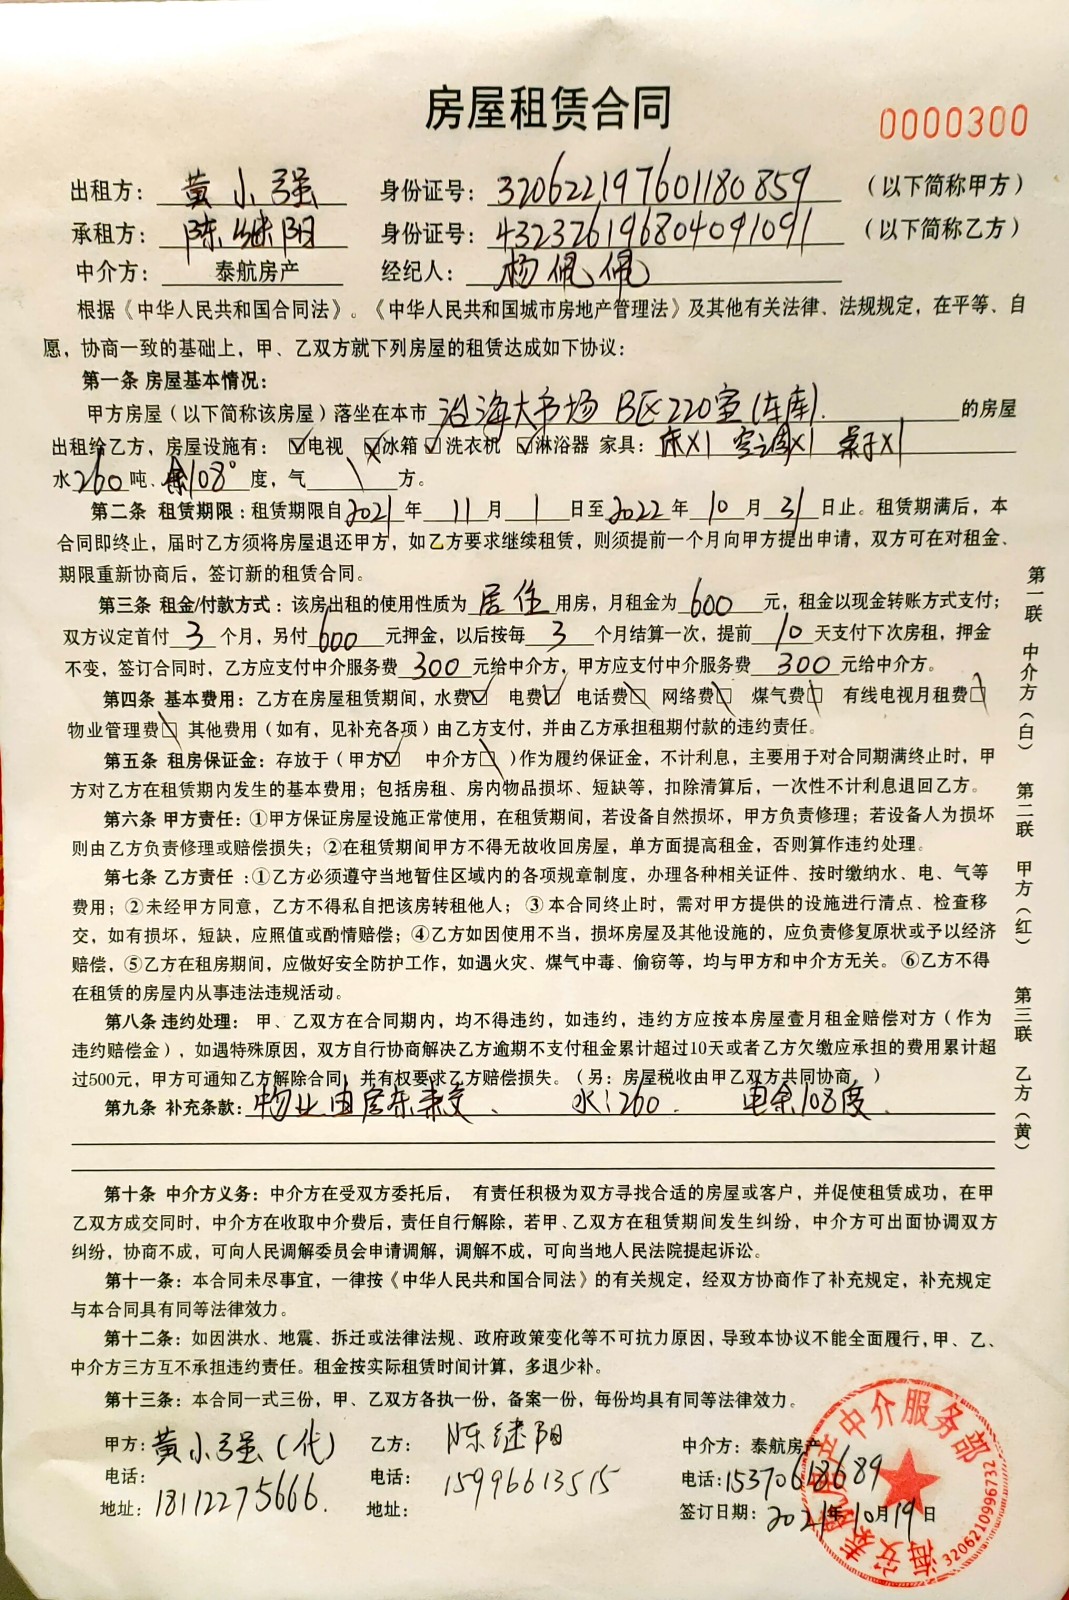 房屋租赁合同
0000300
出租方：黄小强 身份证号：320622197601180859 （以下简称甲方）
承租方：陈继阳 身份证号：432326196804091091 （以下简称乙方）
中介方：泰航房产 经纪人：杨佩佩
根据《中华人民共和国合同法》。《中华人民共和国城市房地产管理法》及其他有关法律、法规规定，在平等、自
愿，协商一致的基础上，甲、乙双方就下列房屋的租赁达成如下协议：
第一条 房屋基本情况：
甲方房屋（以下简称该房屋）落坐在本市 沿海大市场 B区220室（车库）. 的房屋
出租给乙方，房屋设施有：☑电视 ☒冰箱 ☑洗衣机 ☑淋浴器 家具：床X1 空调X1 桌子X1
水260吨、余108°度，气 \ 方。
第二条 租赁期限：租赁期限自2021年 11 月 1 日至2022年 10 月 31 日止。租赁期满后，本
合同即终止，届时乙方须将房屋退还甲方，如乙方要求继续租赁，则须提前一个月向甲方提出申请，双方可在对租金、
期限重新协商后，签订新的租赁合同。
第三条 租金/付款方式：该房出租的使用性质为 居住 用房，月租金为 600 元，租金以现金转账方式支付；
双方议定首付 3 个月，另付 600 元押金，以后按每 3 个月结算一次，提前 10 天支付下次房租，押金
不变，签订合同时，乙方应支付中介服务费 300 元给中介方，甲方应支付中介服务费 300 元给中介方。
第四条 基本费用：乙方在房屋租赁期间，水费☑ 电费☑ 电话费□ 网络费□ 煤气费□ 有线电视月租费□
物业管理费□ 其他费用（如有，见补充各项）由乙方支付，并由乙方承担租期付款的违约责任。
第五条 租房保证金：存放于（甲方☑ 中介方□ ）作为履约保证金，不计利息，主要用于对合同期满终止时，甲
方对乙方在租赁期内发生的基本费用；包括房租、房内物品损坏、短缺等，扣除清算后，一次性不计利息退回乙方。
第六条 甲方责任：①甲方保证房屋设施正常使用，在租赁期间，若设备自然损坏，甲方负责修理；若设备人为损坏
则由乙方负责修理或赔偿损失；②在租赁期间甲方不得无故收回房屋，单方面提高租金，否则算作违约处理。
第七条 乙方责任：①乙方必须遵守当地暂住区域内的各项规章制度，办理各种相关证件、按时缴纳水、电、气等
费用；②未经甲方同意，乙方不得私自把该房转租他人；③本合同终止时，需对甲方提供的设施进行清点、检查移
交，如有损坏，短缺，应照值或酌情赔偿；④乙方如因使用不当，损坏房屋及其他设施的，应负责修复原状或予以经济
赔偿，⑤乙方在租房期间，应做好安全防护工作，如遇火灾、煤气中毒、偷窃等，均与甲方和中介方无关。⑥乙方不得
在租赁的房屋内从事违法违规活动。
第八条 违约处理：甲、乙双方在合同期内，均不得违约，如违约，违约方应按本房屋壹月租金赔偿对方（作为
违约赔偿金），如遇特殊原因，双方自行协商解决乙方逾期不支付租金累计超过10天或者乙方欠缴应承担的费用累计超
过500元，甲方可通知乙方解除合同，并有权要求乙方赔偿损失。（另：房屋税收由甲乙双方共同协商。）
第九条 补充条款：物业由房东来交、 水：260. 电余108度.
第十条 中介方义务：中介方在受双方委托后，有责任积极为双方寻找合适的房屋或客户，并促使租赁成功，在甲
乙双方成交同时，中介方在收取中介费后，责任自行解除，若甲、乙双方在租赁期间发生纠纷，中介方可出面协调双方
纠纷，协商不成，可向人民调解委员会申请调解，调解不成，可向当地人民法院提起诉讼。
第十一条：本合同未尽事宜，一律按《中华人民共和国合同法》的有关规定，经双方协商作了补充规定，补充规定
与本合同具有同等法律效力。
第十二条：如因洪水、地震、拆迁或法律法规、政府政策变化等不可抗力原因，导致本协议不能全面履行，甲、乙、
中介方三方互不承担违约责任。租金按实际租赁时间计算，多退少补。
第十三条：本合同一式三份，甲、乙双方各执一份，备案一份，每份均具有同等法律效力。
甲方：黄小强（代） 乙方：陈继阳 中介方：泰航房产
电话：18112275666. 电话：15996613515 电话：15370618689
地址： 地址： 签订日期：2021年10月19日
第一联 中介方（白） 第二联 甲方（红） 第三联 乙方（黄）
海安泰航房产中介服务部
3206210996732